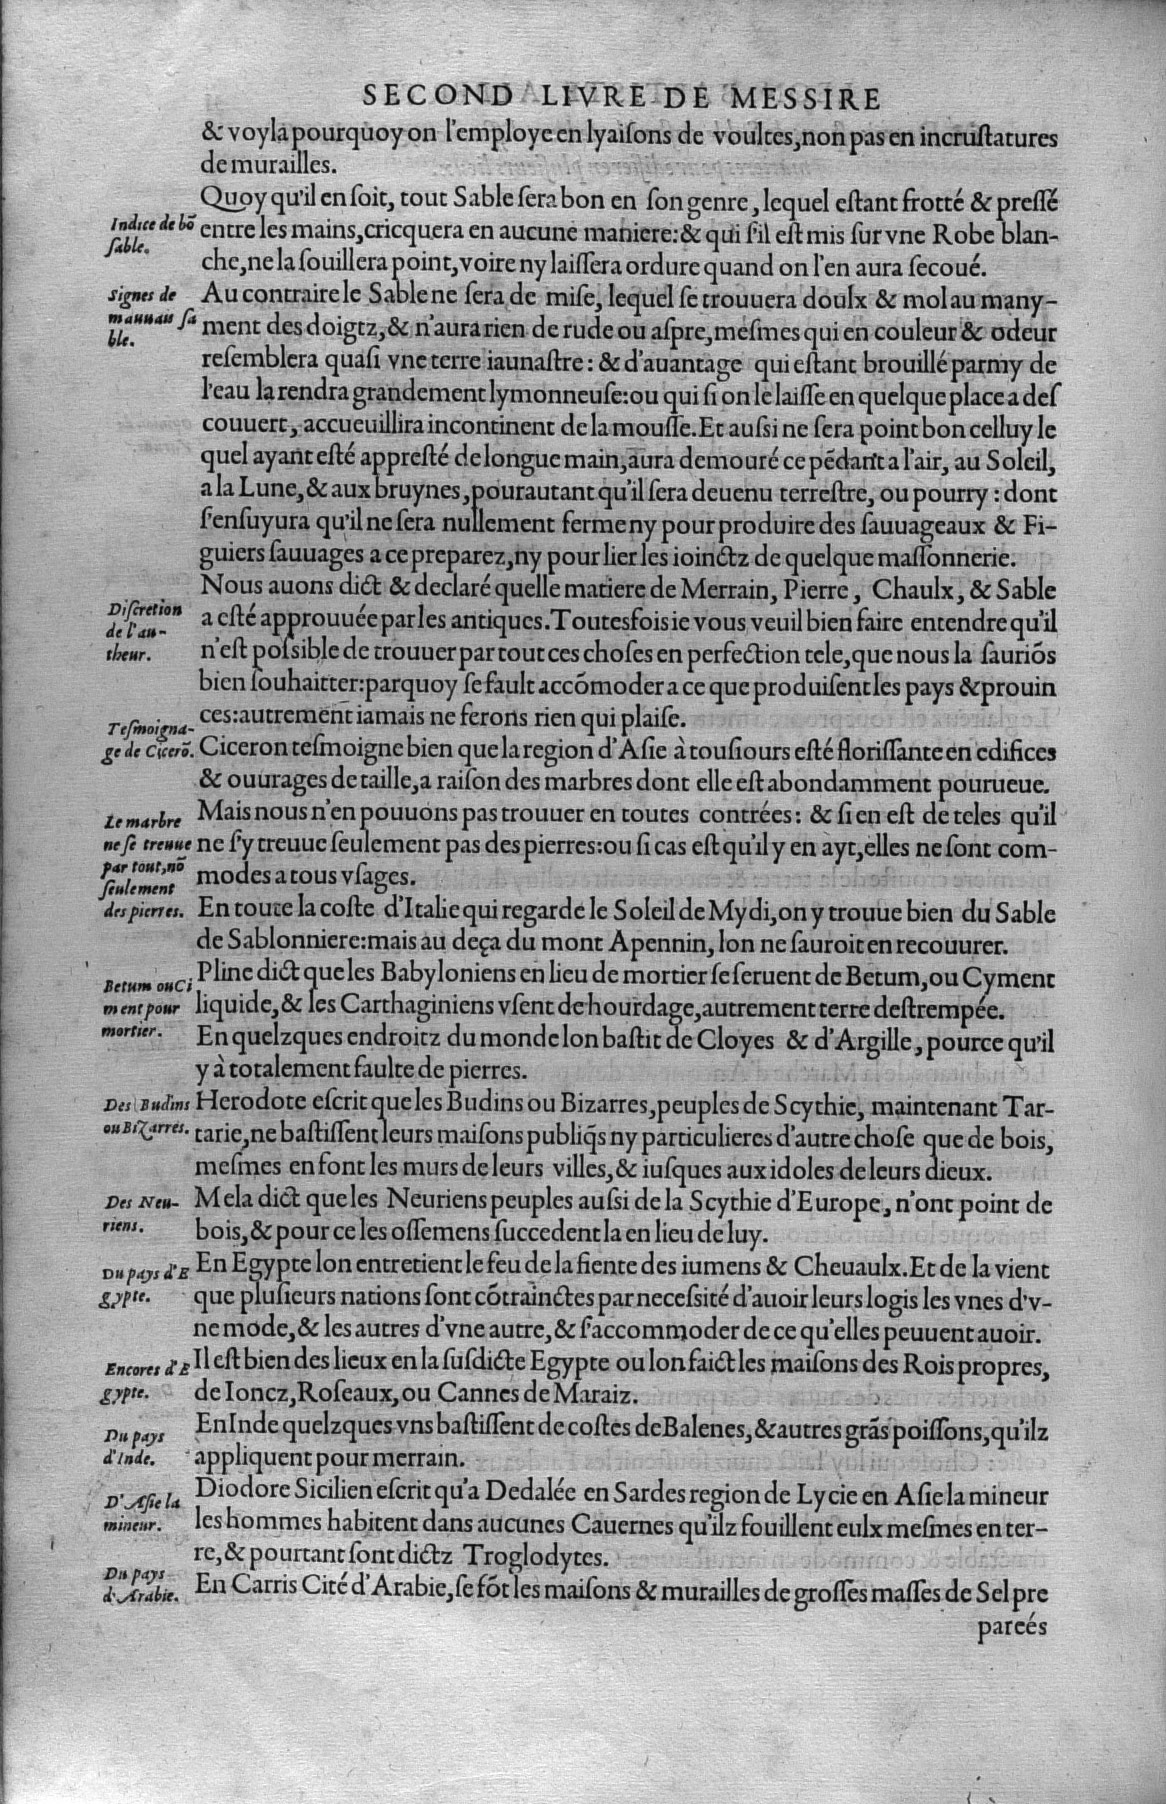 SECOND LIVRE DE MESSIRE
& voyla pourquoy on l'employe en lyaiſons de voultes, non pas en incruſtatures
de murailles.
Quoy qu'il en ſoit, tout Sable ſera bon en ſon genre, lequel eſtant frotté & preſſé
Indice de bõ
ſable.
entre les mains, cricquera en aucune maniere: & qui ſ'il eſt mis ſur vne Robe blan-
che, ne la ſouillera point, voire ny laiſſera ordure quand on l'en aura ſecoué.
Signes de
mauuais ſa
ble.
Au contraire le Sable ne ſera de miſe, lequel ſe trouuera doulx & mol au many-
ment des doigtz, & n'aura rien de rude ou aſpre, meſmes qui en couleur & odeur
reſemblera quaſi vne terre iaunaſtre: & d'auantage qui eſtant brouillé parmy de
l'eau la rendra grandement lymonneuſe: ou qui ſi on le laiſſe en quelque place a deſ
couuert, accueuillira incontinent de la mouſſe. Et auſſi ne ſera point bon celluy le
quel ayant eſté appreſté de longue main, aura demouré ce pẽdant a l'air, au Soleil,
a la Lune, & aux bruynes, pourautant qu'il ſera deuenu terreſtre, ou pourry: dont
ſ'enſuyura qu'il ne ſera nullement ferme ny pour produire des ſauuageaux & Fi-
guiers ſauuages a ce preparez, ny pour lier les ioinctz de quelque maſſonnerie.
Nous auons dict & declaré quelle matiere de Merrain, Pierre, Chaulx, & Sable
Diſcretion
de l'au-
theur.
a eſté approuuée par les antiques. Toutesfois ie vous veuil bien faire entendre qu'il
n'eſt poſsible de trouuer par tout ces choſes en perfection tele, que nous la ſauriõs
bien ſouhaitter: parquoy ſe fault accõmoder a ce que produiſent les pays & prouin
ces: autrement iamais ne ferons rien qui plaiſe.
Teſmoigna-
ge de Cicerõ.
Ciceron teſmoigne bien que la region d'Aſie à touſiours eſté floriſſante en edifices
& ouurages de taille, a raiſon des marbres dont elle eſt abondamment pourueue.
Le marbre
ne ſe treuue
par tout, nõ
ſeulement
des pierres.
Mais nous n'en pouuons pas trouuer en toutes contrées: & ſi en eſt de teles qu'il
ne ſ'y treuue ſeulement pas des pierres: ou ſi cas eſt qu'il y en ayt, elles ne ſont com-
modes a tous vſages.
En toute la coſte d'Italie qui regarde le Soleil de Mydi, on y trouue bien du Sable
de Sablonniere: mais au deça du mont Apennin, lon ne ſauroit en recouurer.
Betum ou Ci
ment pour
mortier.
Pline dict que les Babyloniens en lieu de mortier ſe ſeruent de Betum, ou Cyment
liquide, & les Carthaginiens vſent de hourdage, autrement terre deſtrempée.
En quelzques endroitz du monde lon baſtit de Cloyes & d'Argille, pource qu'il
y à totalement faulte de pierres.
Des Budins
ou Bizarres.
Herodote eſcrit que les Budins ou Bizarres, peuples de Scythie, maintenant Tar-
tarie, ne baſtiſſent leurs maiſons publiq̃s ny particulieres d'autre choſe que de bois,
meſmes en font les murs de leurs villes, & iuſques aux idoles de leurs dieux.
Des Neu-
riens.
Mela dict que les Neuriens peuples auſsi de la Scythie d'Europe, n'ont point de
bois, & pour ce les oſſemens ſuccedent la en lieu de luy.
Du pays d'E
gypte.
En Egypte lon entretient le feu de la fiente des iumens & Cheuaulx. Et de la vient
que pluſieurs nations ſont cõtrainctes par neceſsité d'auoir leurs logis les vnes d'v-
ne mode, & les autres d'vne autre, & ſ'accommoder de ce qu'elles peuuent auoir.
Encores d'E
gypte.
Il eſt bien des lieux en la ſuſdicte Egypte ou lon faict les maiſons des Rois propres,
de Ioncz, Roſeaux, ou Cannes de Maraiz.
Du pays
d'Inde.
En Inde quelzques vns baſtiſſent de coſtes de Balenes, & autres grãs poiſſons, qu'ilz
appliquent pour merrain.
D'Aſie la
mineur.
Diodore Sicilien eſcrit qu'a Dedalée en Sardes region de Lycie en Aſie la mineur
les hommes habitent dans aucunes Cauernes qu'ilz fouillent eulx meſmes en ter-
re, & pourtant ſont dictz Troglodytes.
Du pays
d'Arabie.
En Carris Cité d'Arabie, ſe fõt les maiſons & murailles de groſſes maſſes de Sel pre
parées